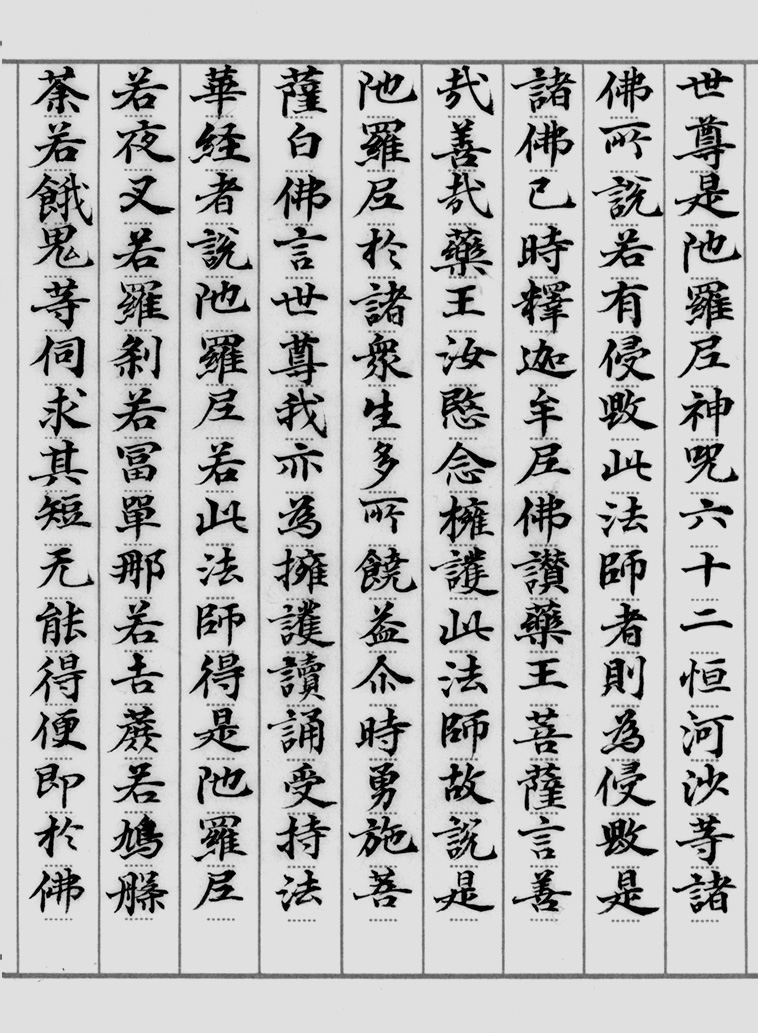 世尊是陁羅尼神呪六十二恒河沙等諸
佛所說若有侵毀此法師者則為侵毀是
諸佛已時釋迦牟尼佛讃藥王菩薩言善
哉善哉藥王汝愍念擁護此法師故說是
陁羅尼於諸衆生多所饒益尒時勇施菩
薩白佛言世尊我亦為擁護讀誦受持法
華経者說陁羅尼若此法師得是陁羅尼
若夜叉若羅刹若冨單那若吉蔗若鳩槃
荼若餓鬼等伺求其短无能得便即於佛